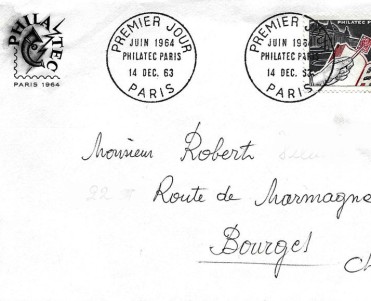 PHILATEC
PARIS 1964
PREMIER JOUR
JUIN 1964
PHILATEC PARIS
14 DEC. 63
PARIS
PREMIER JOUR
JUIN 1964
PHILATEC PARIS
14 DEC.
PARIS
PHILATEC P
Monsieur Robert
Route de Marmagne
Bourges